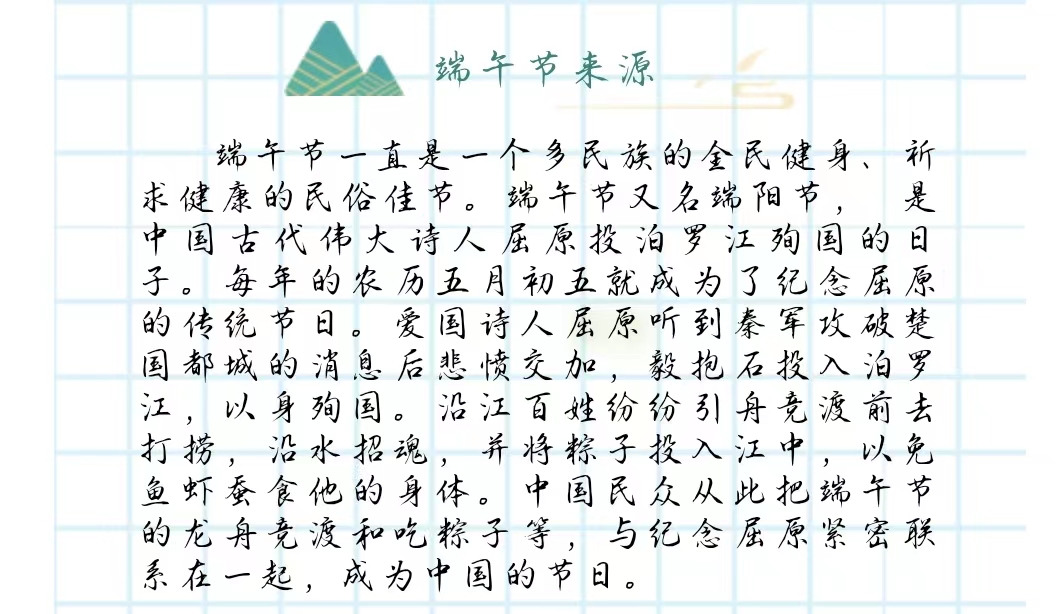 端午节来源
端午节一直是一个多民族的全民健身、祈
求健康的民俗佳节。端午节又名端阳节， 是
中国古代伟大诗人屈原投泊罗江殉国的日
子。每年的农历五月初五就成为了纪念屈原
的传统节日。爱国诗人屈原听到秦军攻破楚
国都城的消息后悲愤交加，毅抱石投入泊罗
江，以身殉国。沿江百姓纷纷引舟竞渡前去
打捞，沿水招魂，并将粽子投入江中，以免
鱼虾蚕食他的身体。中国民众从此把端午节
的龙舟竞渡和吃粽子等，与纪念屈原紧密联
系在一起，成为中国的节日。